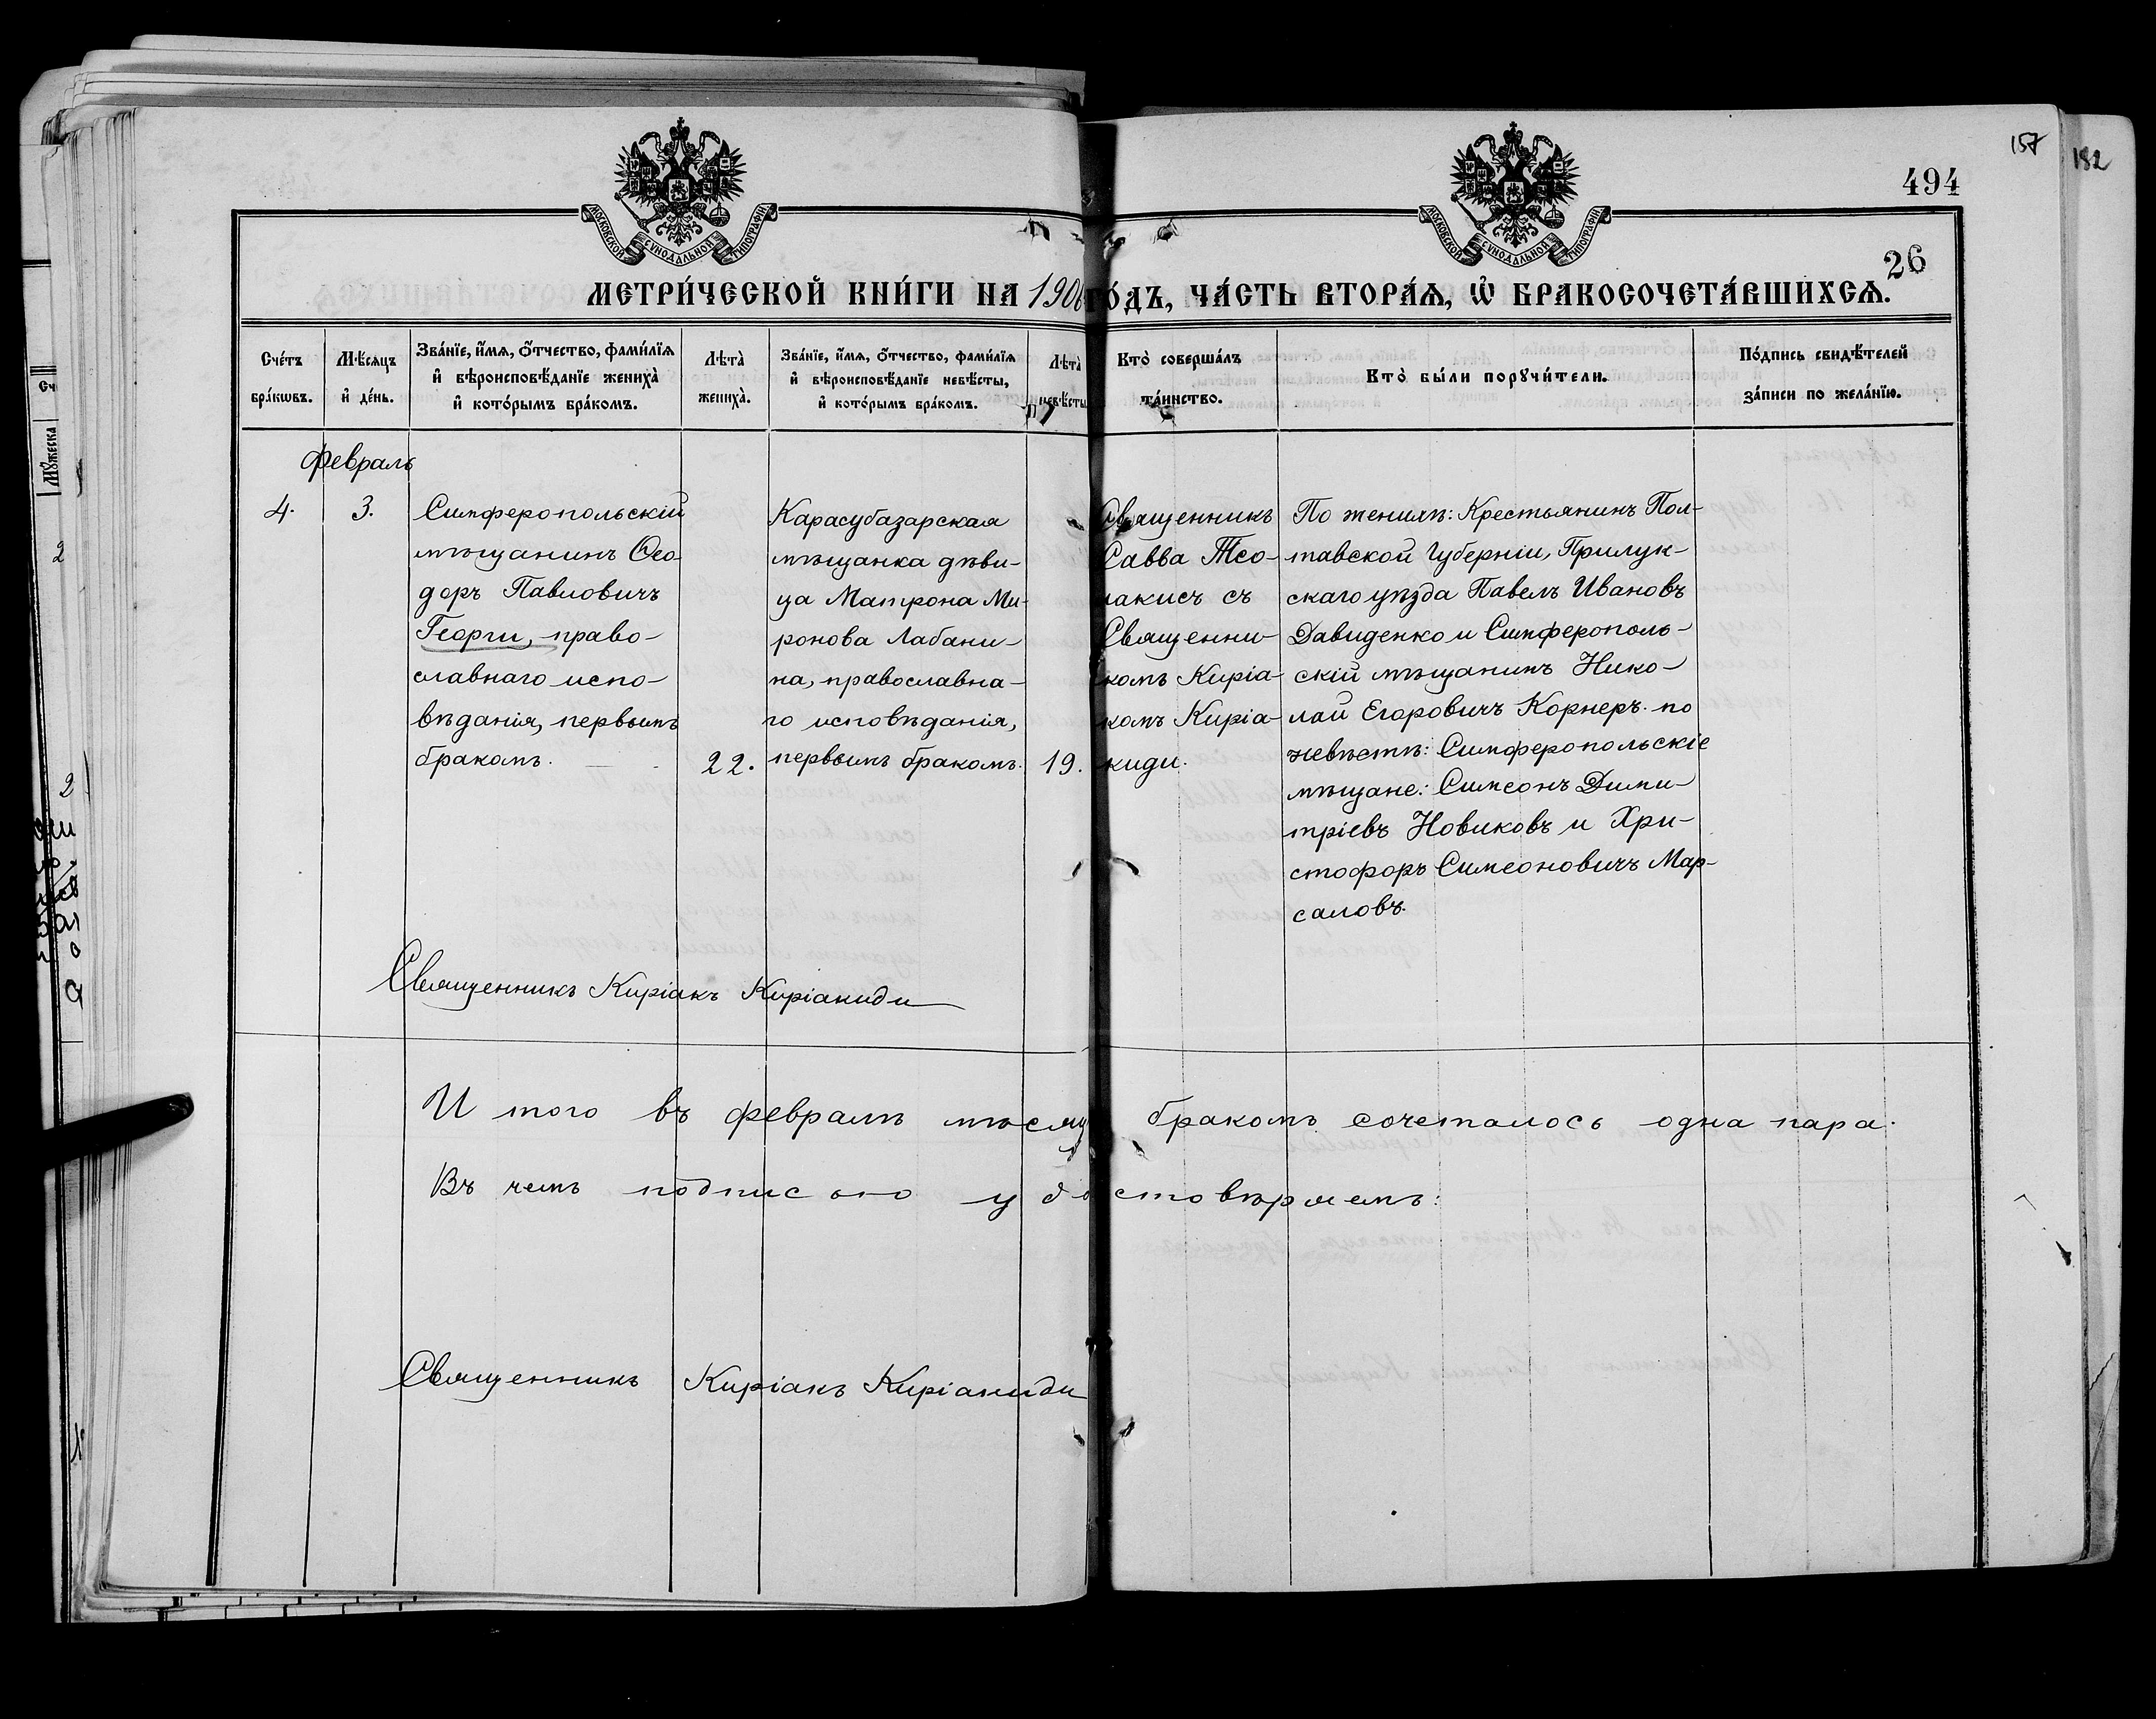 157
182
494
МОСКОВСКОЙ СУНОДАЛЬНОЙ ТИПОГРАФІИ.
МОСКОВСКОЙ СУНОДАЛЬНОЙ ТИПОГРАФІИ.
26
МЕТРИ́ЧЕСКОЙ КНИ́ГИ НА 1906 ГО́ДЪ, ЧА́СТЬ ВТОРА́Ѧ, Ѽ БРАКОСОЧЕТА́ВШИХСѦ.
Сче́тъ
бра́кωвъ.
Мѣ́сѧцъ
и҆ де́нь.
Зва́нїе, и҆́мѧ, ѻ҆́тчество, фами́лїѧ
и҆ вѣроисповѣ́данїе жениха̀
и҆ кото́рымъ бра́комъ.
Лѣта̀
жениха̀.
Зва́нїе, и҆́мѧ, ѻ҆́тчество, фами́лїѧ
и҆ вѣроисповѣ́данїе невѣ́сты,
и҆ кото́рымъ бра́комъ.
Лѣта̀
невѣ́сты
Кто̀ соверша́лъ
та́инство.
Кто̀ бы́ли порꙋчи́тели.
По́дпись свидѣ́телей
за́писи по жела́нїю.
Февраль
4.
3.
Симферопольскій
мѣщанинъ Ѳео-
доръ Павловичъ
Георги, право-
славнаго испо-
вѣданія, первымъ
бракомъ.
22.
Карасубазарская
мѣщанка дѣви-
ца Матрона Ми-
ронова Лабани-
на, православна-
го исповѣданія,
первымъ бракомъ.
19.
Священникъ
Савва Тео-
лакисъ съ
Священни-
комъ Киріа-
комъ Киріа-
киди.
По женихѣ: Крестьянинъ Пол-
тавской Губерніи, Прилук-
скаго уѣзда Павелъ Ивановъ
Давиденко и Симферополь-
скій мѣщанинъ Нико-
лай Егоровичъ Корнеръ. по
невѣстѣ: Симферопольскіе
мѣщане: Симеонъ Дими-
тріевъ Новиковъ и Хри-
стофоръ Симеоновичъ Мар-
саловъ.
Священникъ Киріакъ Киріакиди
И того въ февралѣ мѣсяц бракомъ сочеталось одна пара.
Въ чемъ подписью удостовѣряемъ:
Священникъ Киріакъ Киріакиди